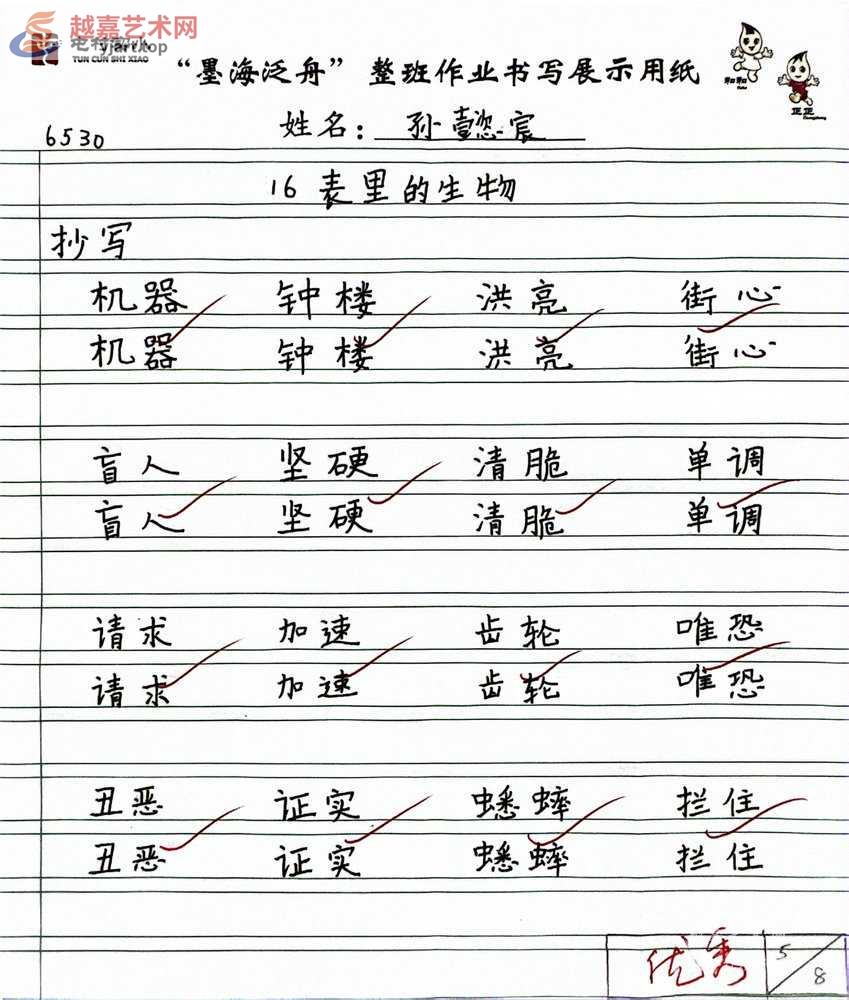 越嘉艺术网
yjart.top
TUN CUN SHI XIAO
“墨海泛舟”整班作业书写展示用纸
和和
正正
6530
姓名：孙懿宸
16 表里的生物
抄写
机器 钟楼 洪亮 街心
机器 钟楼 洪亮 街心
盲人 坚硬 清脆 单调
盲人 坚硬 清脆 单调
请求 加速 齿轮 唯恐
请求 加速 齿轮 唯恐
丑恶 证实 蟋蟀 拦住
丑恶 证实 蟋蟀 拦住
优秀 5/8